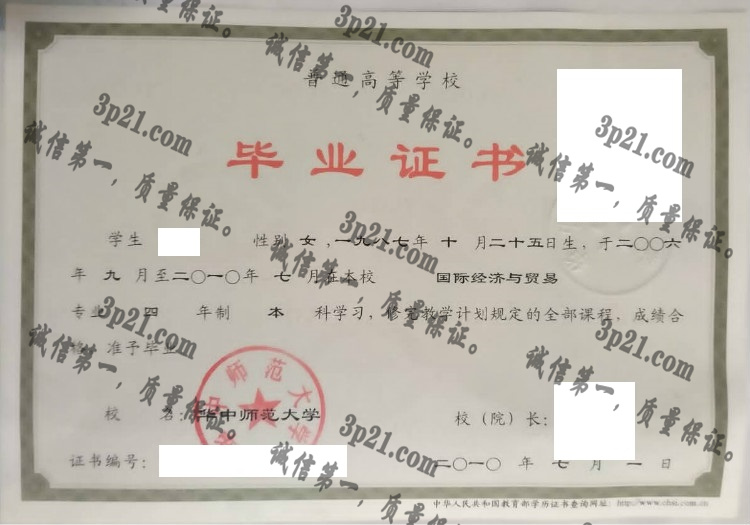 普通高等学校
毕业证书
学生 性别 女 ,一九八七年 十 月二十五日生, 于二〇〇六
年 九 月至二〇一〇年 七 月在本校 国际经济与贸易
专业 四 年制 本 科学习, 修完教学计划规定的全部课程, 成绩合
格, 准予毕业
校 名: 华中师范大学
校(院)长:
证书编号:
二〇一〇 年 七 月 一 日
中华人民共和国教育部学历证书查询网址: http://www.chsi.com.cn
华中师范大学
3p21.com
诚信第一, 质量保证。
3p21.com
诚信第一, 质量保证。
3p21.com
诚信第一, 质量保证。
3p21.com
诚信第一, 质量保证。
3p21.com
诚信第一, 质量保证。
3p21.com
诚信第一, 质量保证。
3p21.com
诚信第一, 质量保证。
质量保证。